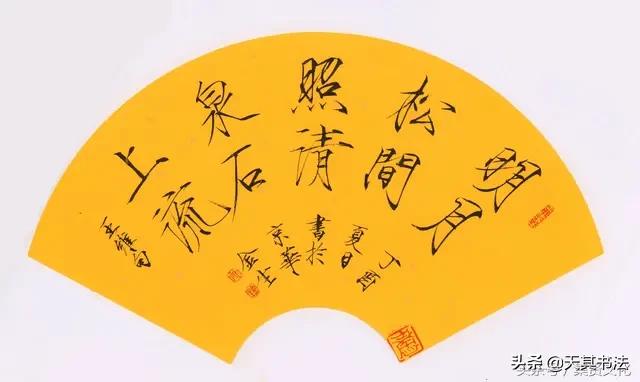 明月
松間
照清
泉石
上流
王維句
丁酉
夏日
書於
京華
金
头条 @天其书法
头条号